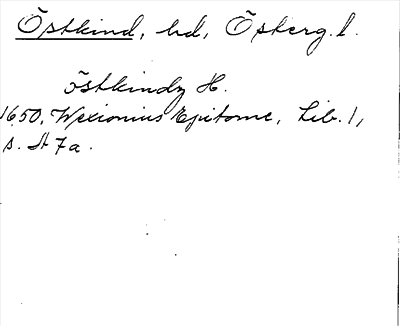 Östkind, hd, Öskerg. l.
östkindz H.
1650, Wexionius Epitome, Lib. 1,
s. St 7a.